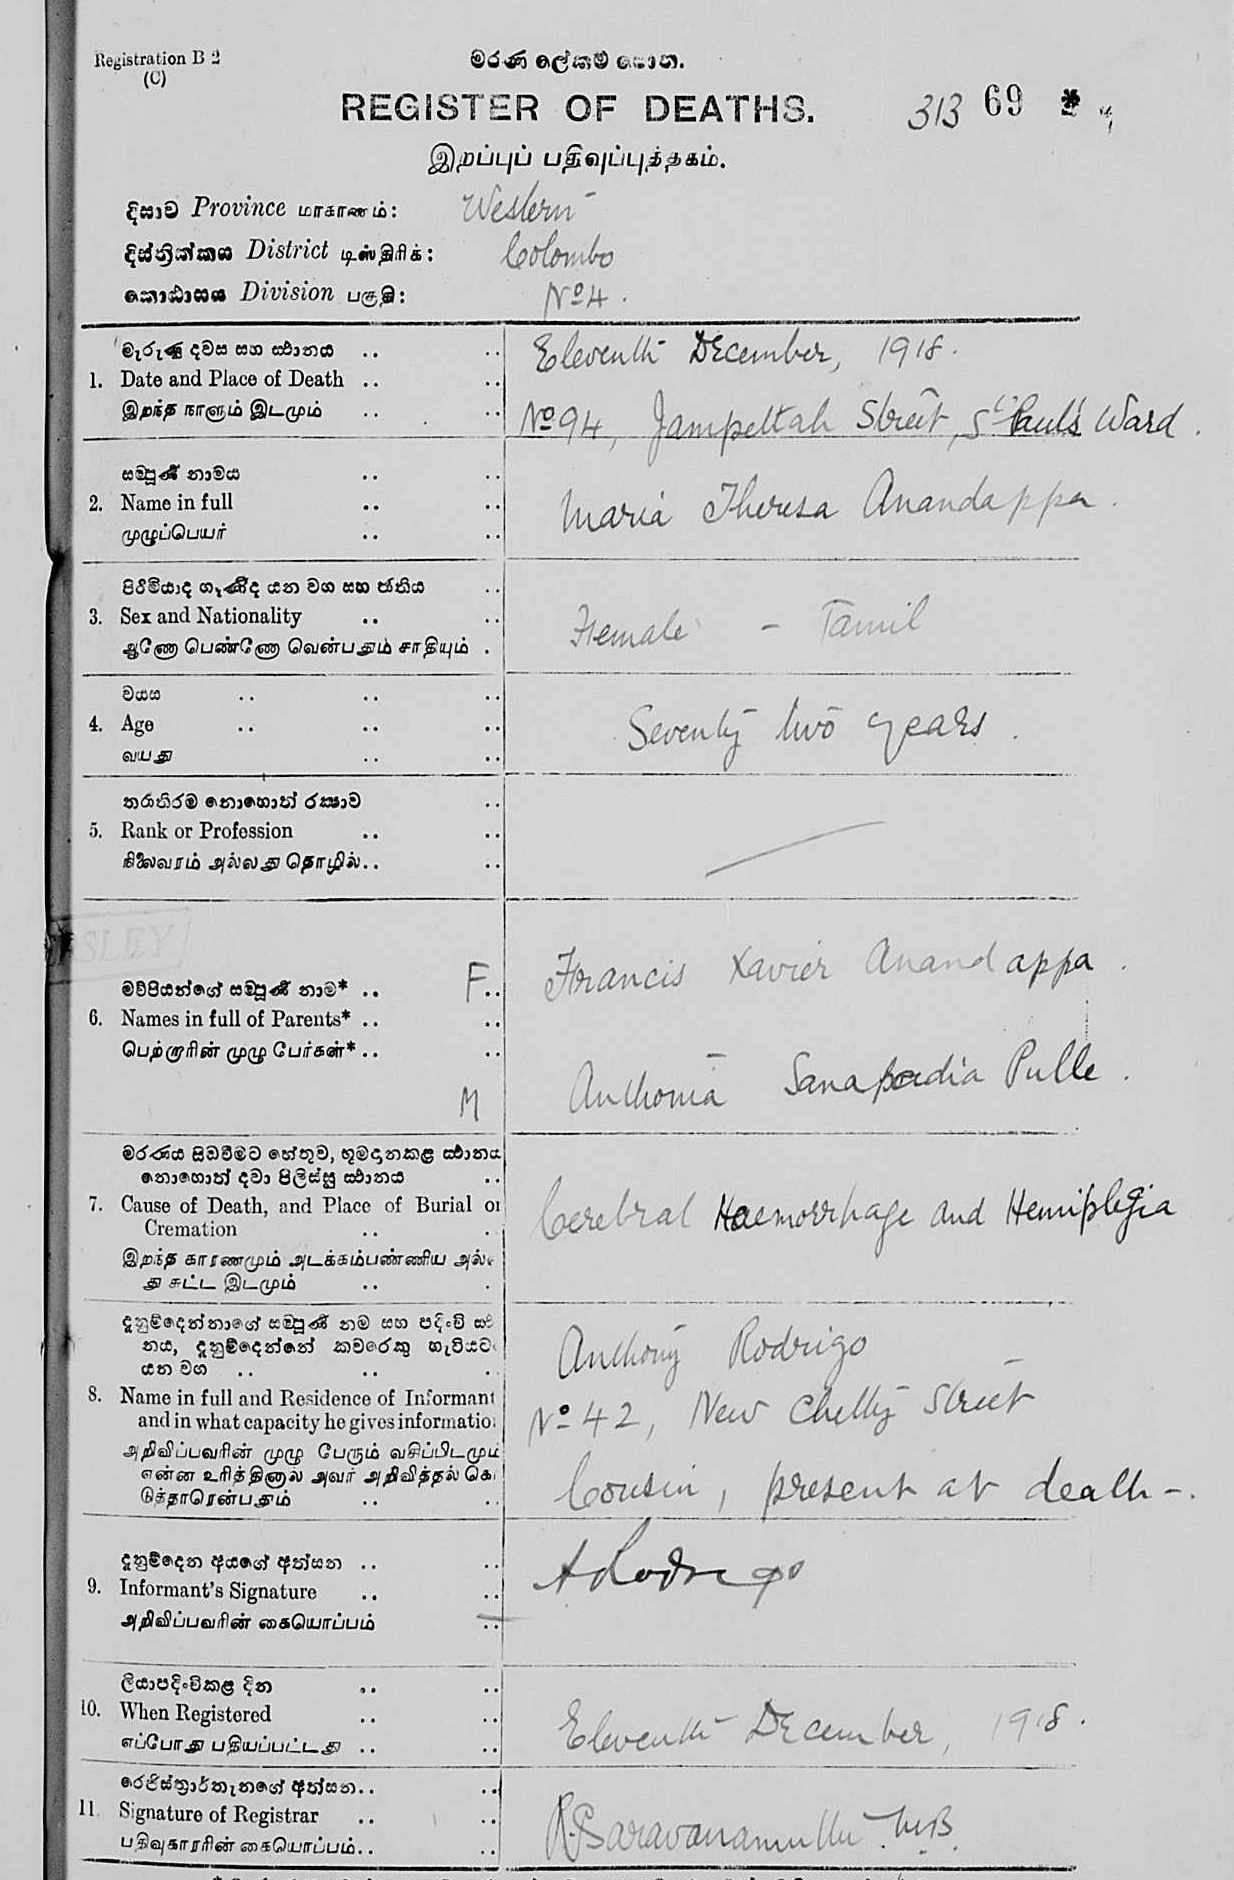 Registration B 2
(C)
මරණ ලේකම් පොත.
REGISTER OF DEATHS.
313 69
இறப்புப் பதிவுப்புத்தகம்.
දිසාව Province மாகாணம்: Western
දිස්ත්‍රික්කය District டிஸ்திரிக்: Colombo
කොඨාසය Division பகுதி: No 4.
මැරුණු දවස සහ ස්ථානය .. ..
1. Date and Place of Death .. ..
இறந்த நாளும் இடமும் .. ..
Eleventh December, 1918.
No 94, Jampettah Street, St Paul's Ward.
සම්පූර්ණ නාමය .. ..
2. Name in full .. ..
முழுப்பெயர் .. ..
Maria Theresa Anandappa.
පිරිමියාද ගෑණිද යන වග සහ ජාතිය ..
3. Sex and Nationality .. ..
ஆணோ பெண்ணோ வென்பதும் சாதியும் .
Female - Tamil
වයස .. .. ..
4. Age .. .. ..
வயது .. ..
Seventy two years.
තරාතිරම නොහොත් රක්ෂාව ..
5. Rank or Profession .. ..
நிலைவரம் அல்லது தொழில்.. ..
මව්පියන්ගේ සම්පූර්ණ නාම* .. ..
6. Names in full of Parents* .. ..
பெற்றாரின் முழு பேர்கள்* .. ..
F Francis Xavier Anandappa.
M Anthonia Sanapadia Pulle.
මරණය සිඬවීමට හේතුව, භූමදානකළ ස්ථානය
නොහොත් දවා පිලිස්සූ ස්ථානය ..
7. Cause of Death, and Place of Burial or
Cremation .. .
இறந்த காரணமும் அடக்கம்பண்ணிய அல்ல
து சுட்ட இடமும் .. .
Cerebral Haemorrhage and Hemiplegia
දැනුම්දෙන්නාගේ සම්පූර්ණ නම සහ පදිංචි ස්ථා
නය, දැනුම්දෙන්නේ කවරෙකු හැටියට
යන වග .. .. .
8. Name in full and Residence of Informant
and in what capacity he gives information
அறிவிப்பவரின் முழு பேரும் வசிப்பிடமும்
என்ன உரித்தினால் அவர் அறிவித்தல் கொ
டுத்தாரென்பதும் .. ..
Anthony Rodrigo
No 42, New Chetty Street
Cousin, present at death -.
දැනුම්දෙන අයගේ අත්සන .. ..
9. Informant's Signature .. ..
அறிவிப்பவரின் கையொப்பம் ..
A Rodrigo
ලියාපදිංචිකළ දින .. ..
10. When Registered .. ..
எப்போது பதியப்பட்டது .. ..
Eleventh December, 1918.
රෙජිස්ත්‍රාර්තැනගේ අත්සන.. ..
11. Signature of Registrar .. ..
பதிவுகாரரின் கையொப்பம்.. ..
R. Saravanamuttu M.B.